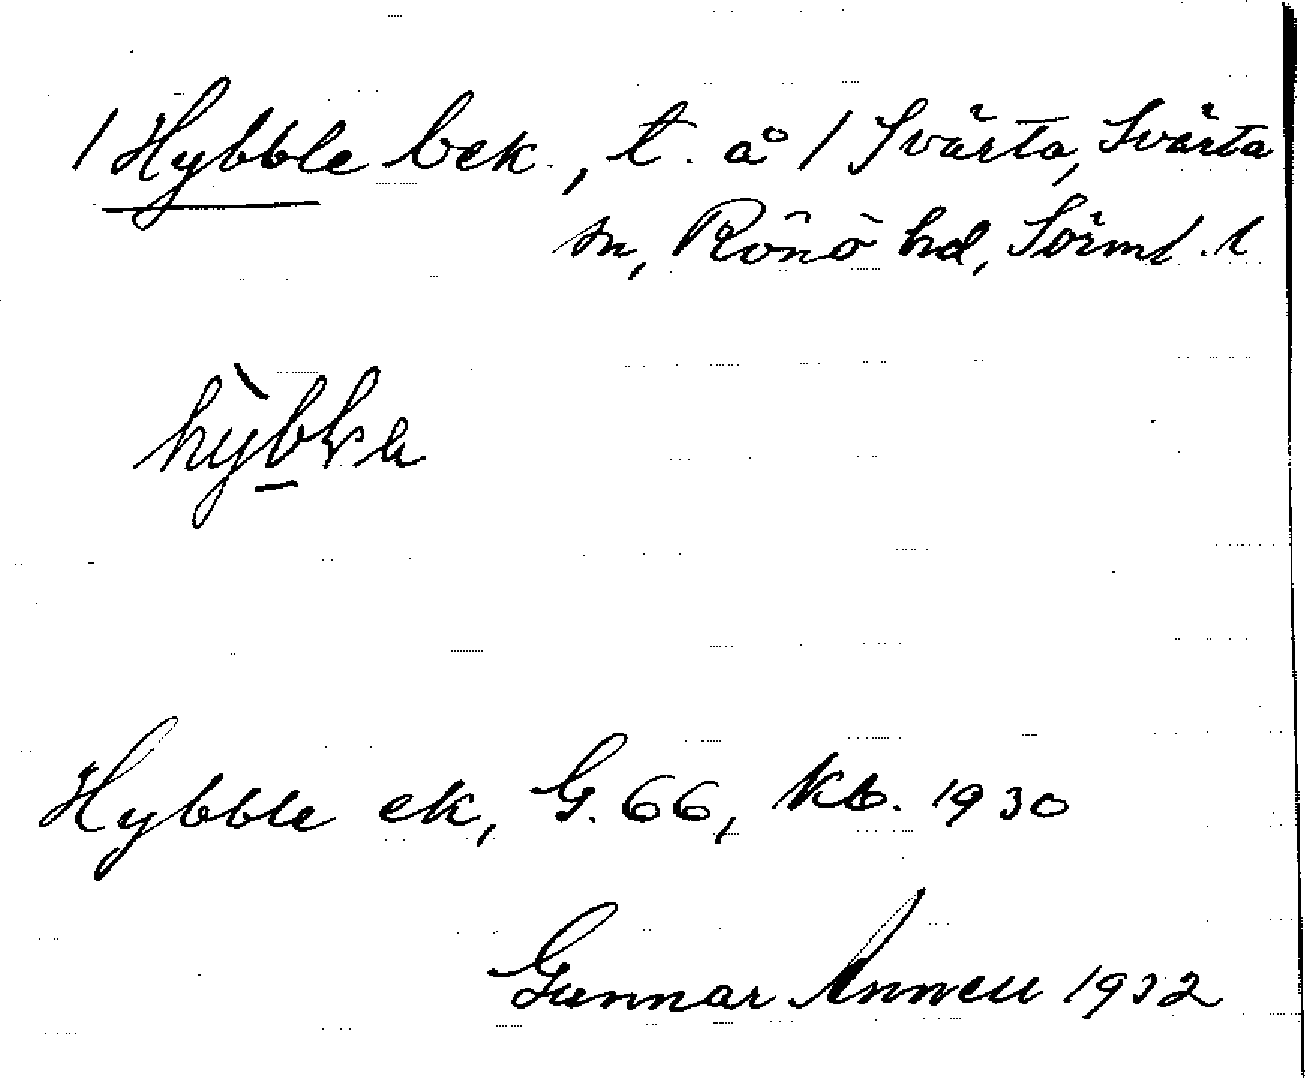 / Hybble bek., t. å / Svärta, Svärta
sn, Rönö hd, Sörml. l
Hybble ek, G. 66, kb. 1930
Gunnar 1932